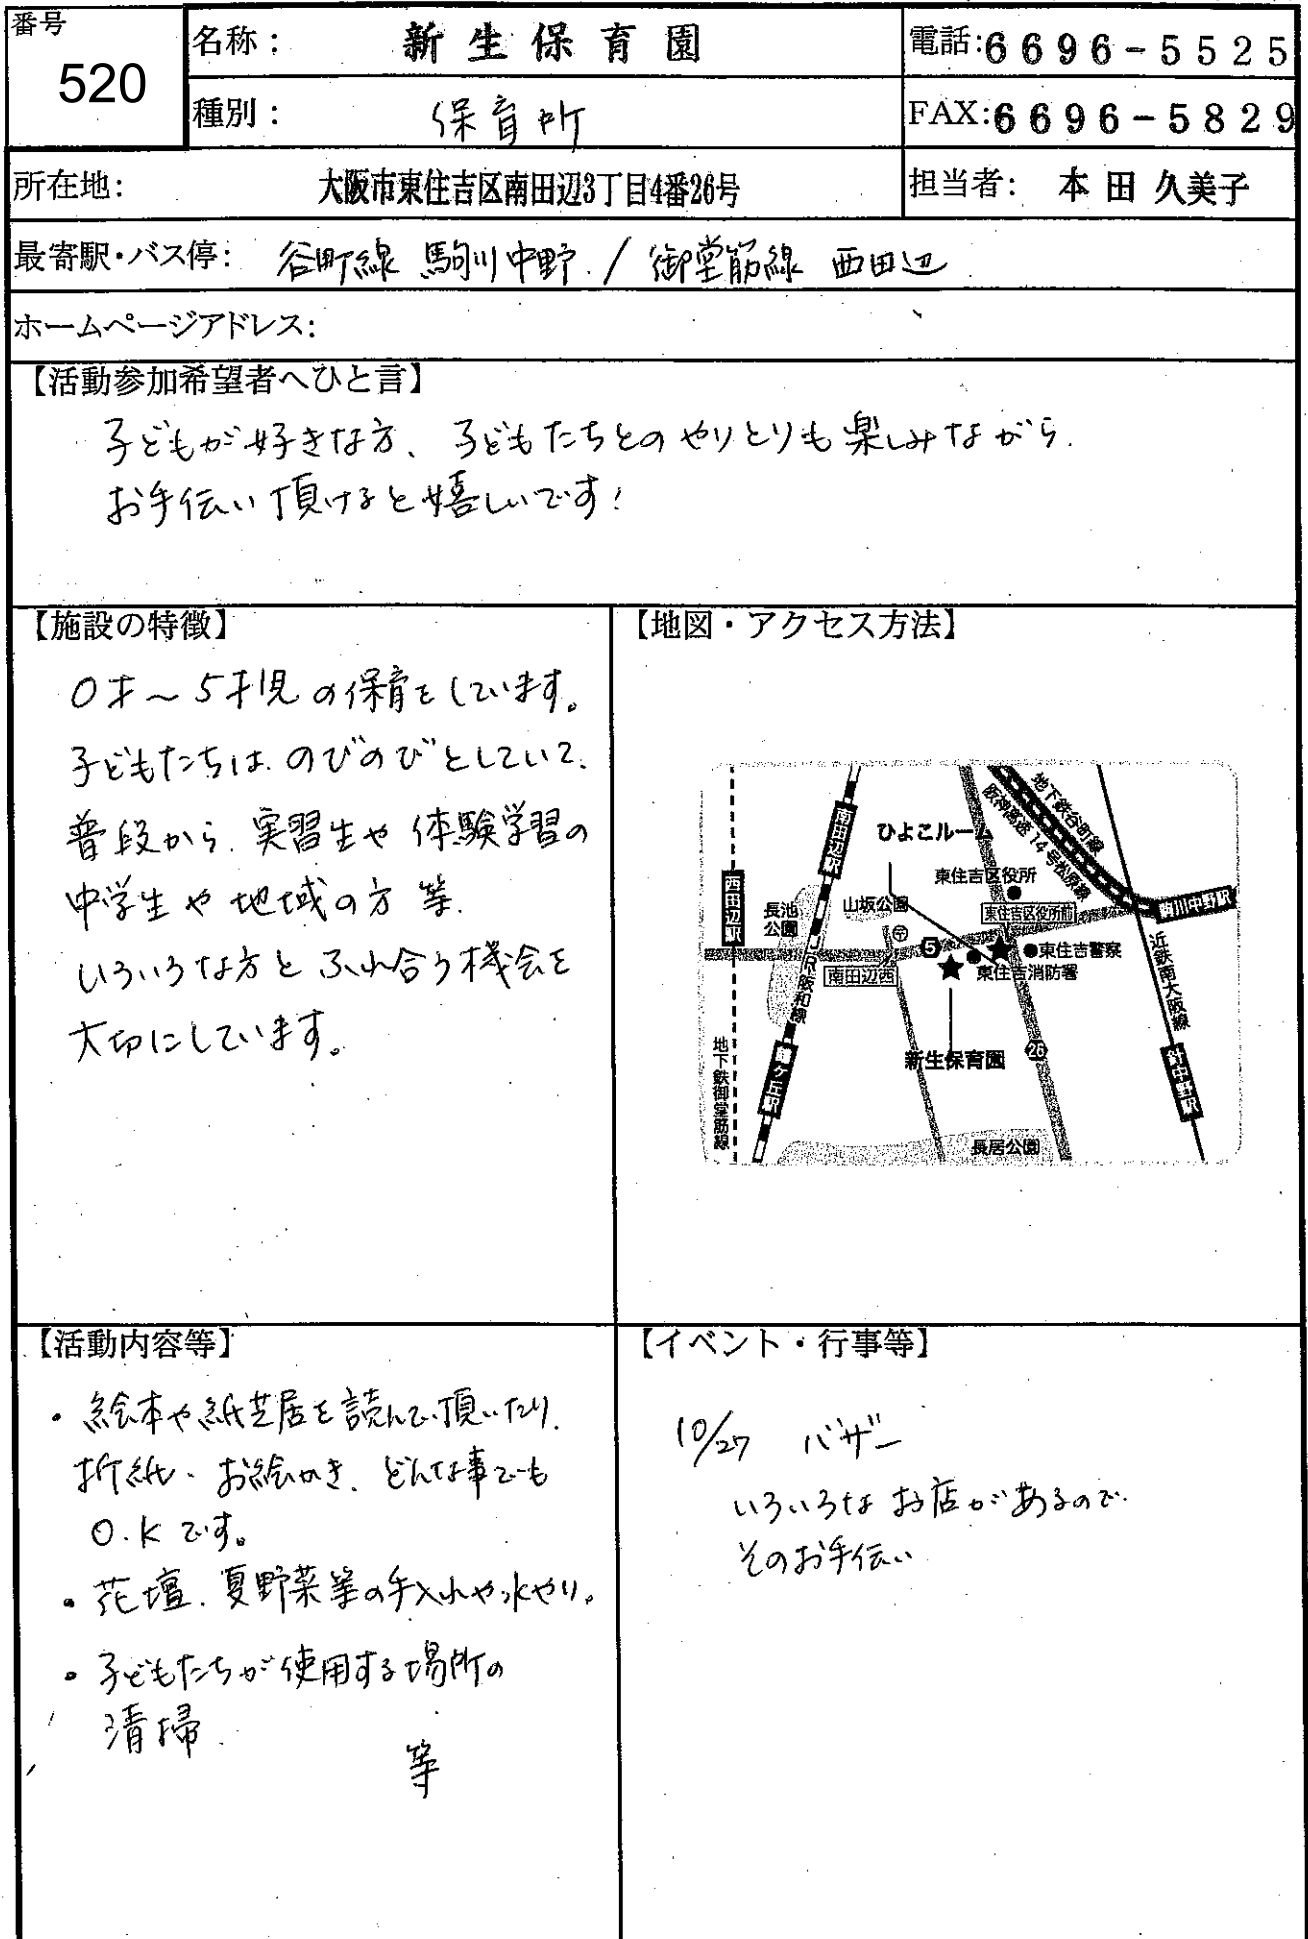 番号
520
名称： 新生保育園
電話：6696-5525
種別： 保育所
FAX:6696-5829
所在地： 大阪市東住吉区南田辺3丁目4番26号
担当者： 本田 久美子
最寄駅・バス停： 谷町線 駒川中野 / 御堂筋線 西田辺
ホームページアドレス：
【活動参加希望者へひと言】
子どもが好きな方、子どもたちとのやりとりも楽しみながら、
お手伝い頂けると嬉しいです！
【施設の特徴】
0才～5才児の保育をしています。
子どもたちは、のびのびとしていて、
普段から、実習生や体験学習の
中学生や地域の方等、
いろいろな方とふれ合う機会を
大切にしています。
【地図・アクセス方法】
地下鉄谷町線
阪神高速14号松原線
南田辺駅
ひよこルーム
東住吉区役所
西田辺駅
長池公園
山坂公園
東住吉区役所前
駒川中野駅
〒
5
東住吉警察
南田辺西
東住吉消防署
JR阪和線
近鉄南大阪線
新生保育園
26
地下鉄御堂筋線
鶴ケ丘駅
針中野駅
長居公園
【活動内容等】
・絵本や紙芝居を読んで頂いたり、
折紙、お絵かき、どんな事でも
O.Kです。
・花壇、夏野菜等の手入れや水やり。
・子どもたちが使用する場所の
清掃
等
【イベント・行事等】
10/27 バザー
いろいろなお店があるので、
そのお手伝い